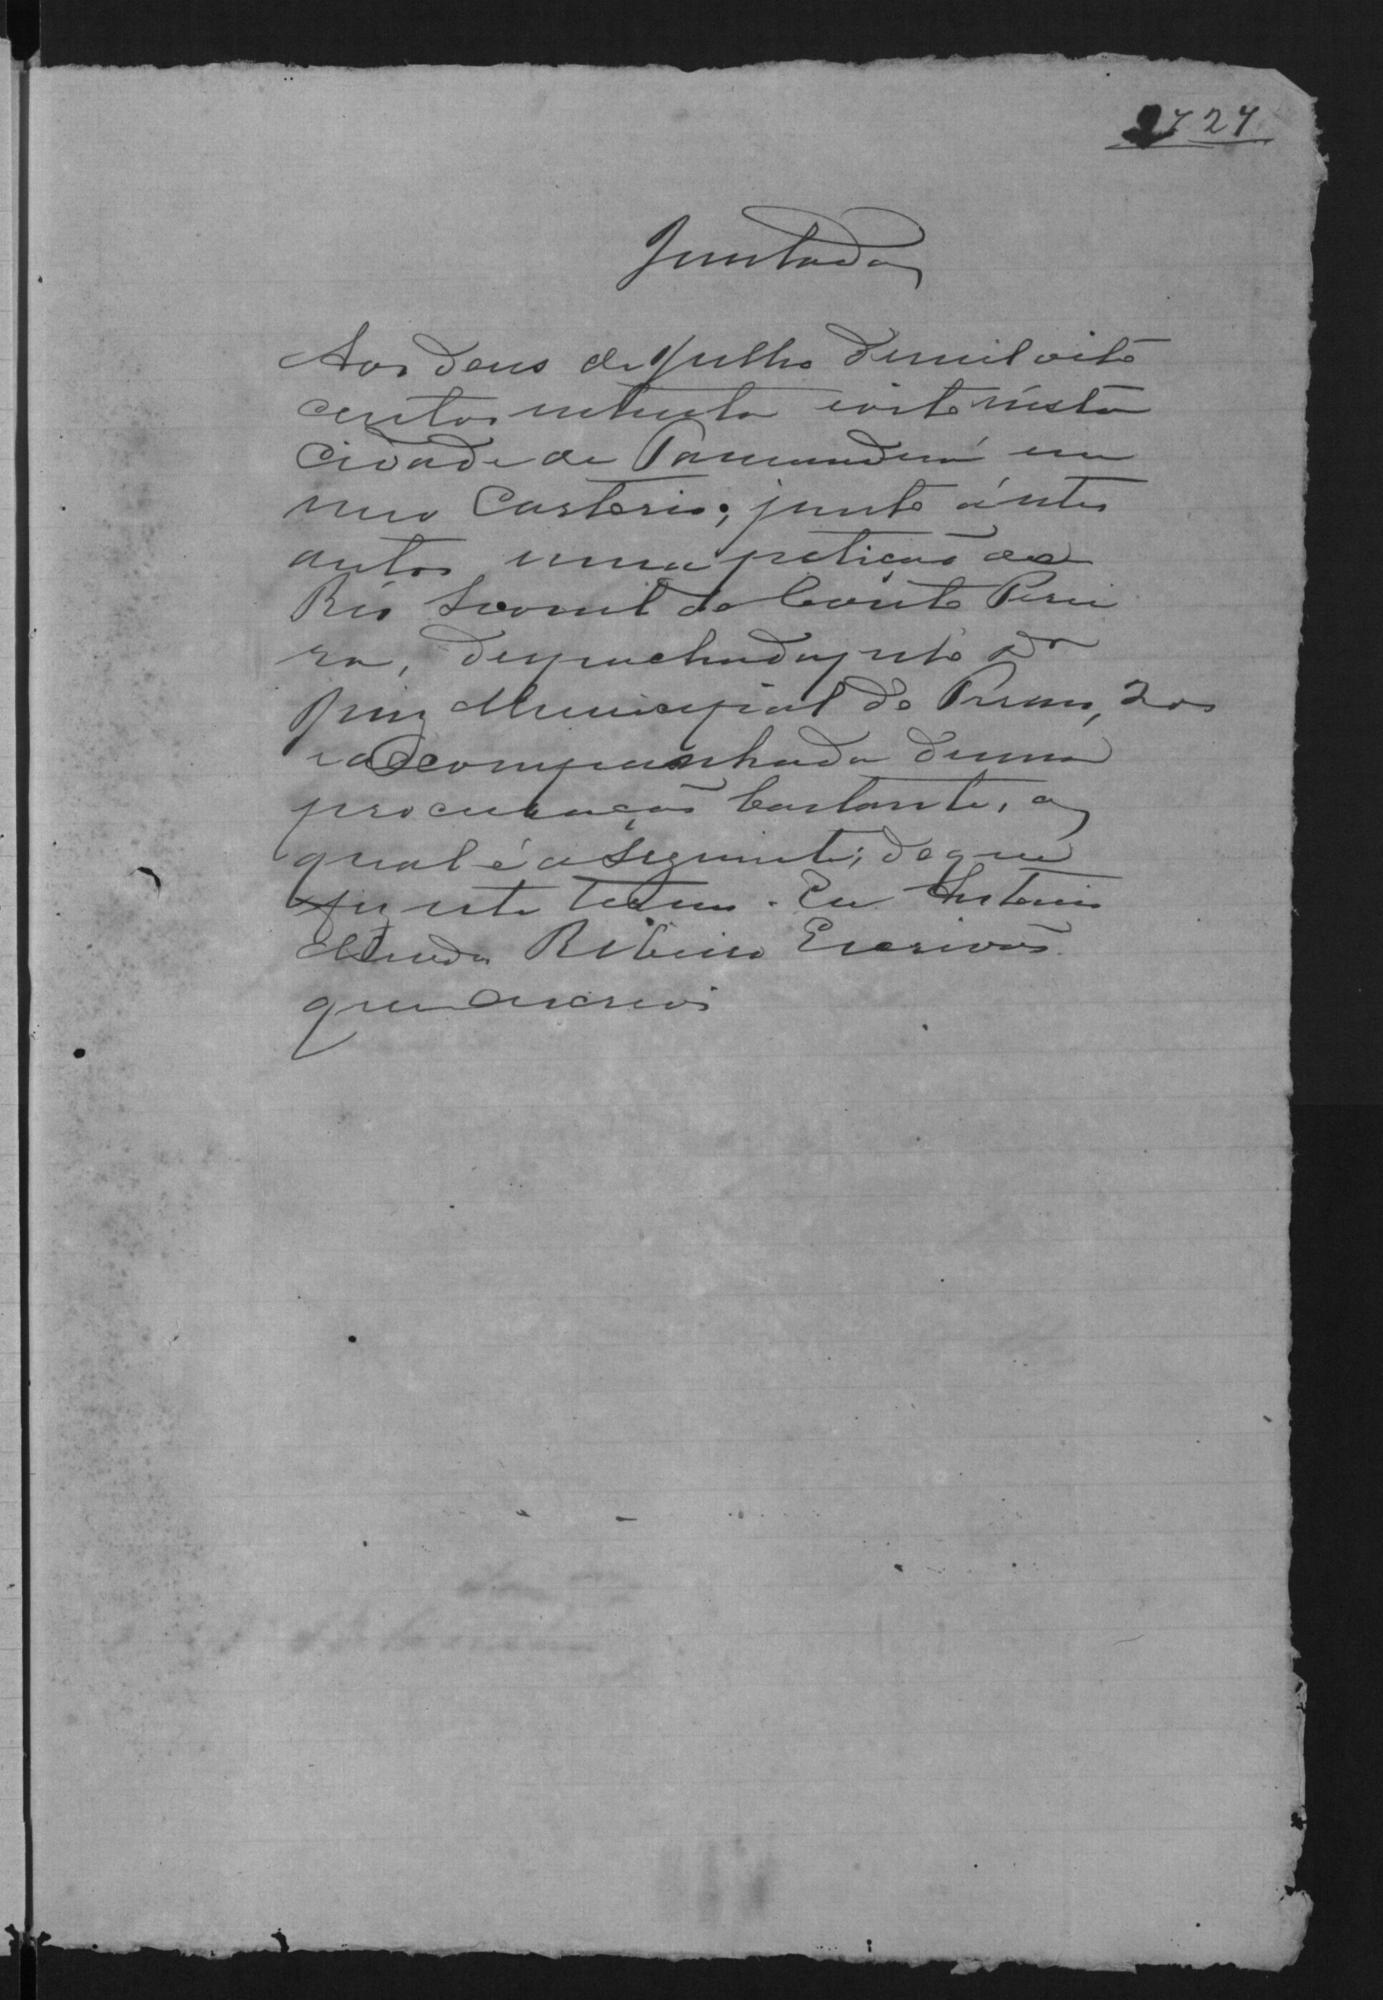 27 27
Juntada
Aos dous de Julho de mil oito
centos setenta e oito nésta
Cidade de Tamanduá em
meo Cartorio; junto á estes
autos uma petição do
Réo Leonel do Couto Perei
ra, despachada pelo Dr
Juiz Municipal do Termo,
e acompanhada de uma
procuração bastante, a
qual é a seguinte; do que
fiz este termo. Eu Antonio
Ribeiro Escrivão
que escrevi